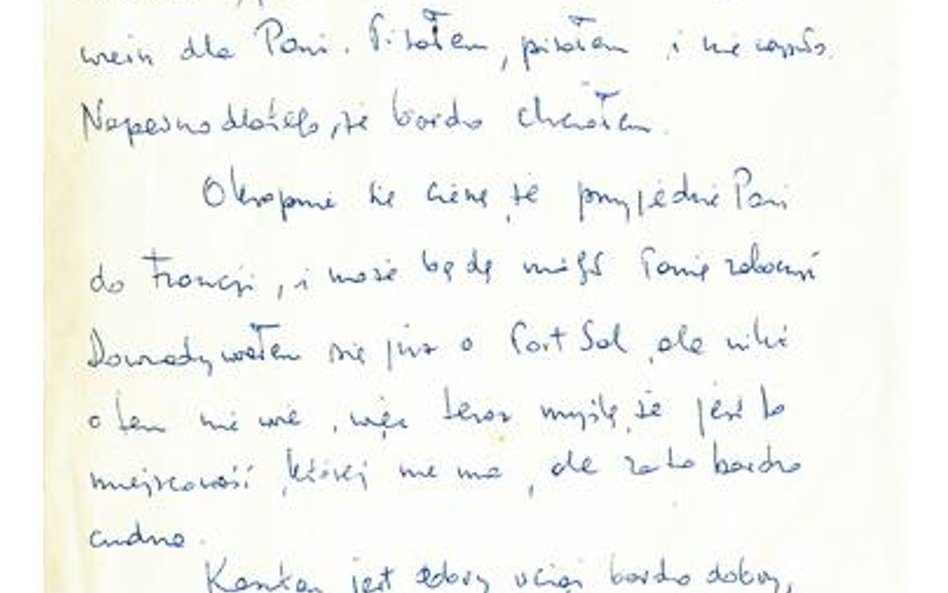 dla Pani. Pisałem, pisałem i nie
Napewno dlatego, że bardzo chciałem.
Okropnie się cieszę, że przyjedzie Pani
do Francji, i może będę mógł Panią zobaczyć
Dowiadywałem się już o Port Sal, ale nikt
o tem nie wie, więc teraz myślę, że jest to
miejscowość, której nie ma, ale za to bardzo
cudna.
jest dobry, bardzo dobry,